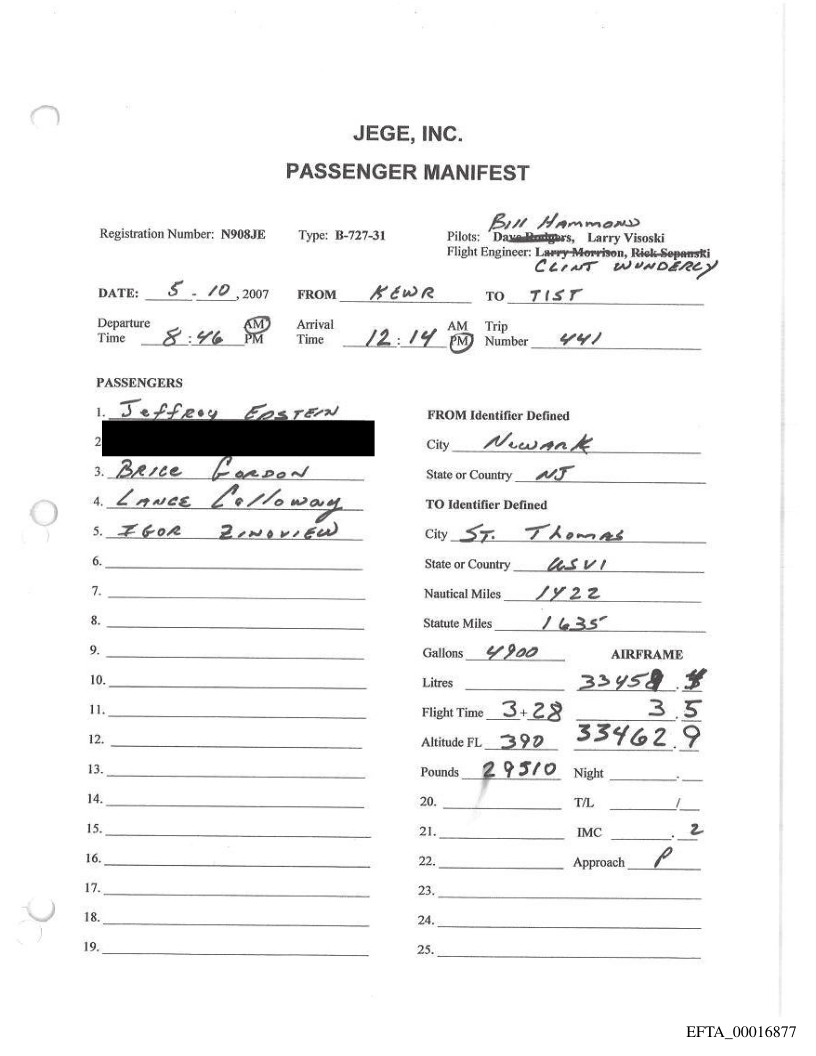 JEGE, INC.
PASSENGER MANIFEST
Bill Hammond
Registration Number: N908JE Type: B-727-31 Pilots: Dave Rodgers, Larry Visoski
Flight Engineer: Larry Morrison, Rick Sepanski
CLINT WUNDERLY
DATE: 5 - 10, 2007 FROM KEWR TO TIST
Departure Time 8:46 AM PM Arrival Time 12:14 AM PM Trip Number 441
PASSENGERS
1. Jeffrey EPSTEIN
FROM Identifier Defined
2
City Newark
3. BRICE GORDON
State or Country NJ
4. LANCE Calloway
TO Identifier Defined
5. IGOR ZINOVIEW
City ST. Thomas
6.
State or Country USVI
7.
Nautical Miles 1422
8.
Statute Miles 1635
9.
Gallons 4900 AIRFRAME
10.
Litres 33459.4
11.
Flight Time 3+28 3.5
12.
Altitude FL 390 33462.9
13.
Pounds 29510 Night .
14.
20. T/L /
15.
21. IMC .2
16.
22. Approach P
17.
23.
18.
24.
19.
25.
EFTA_00016877